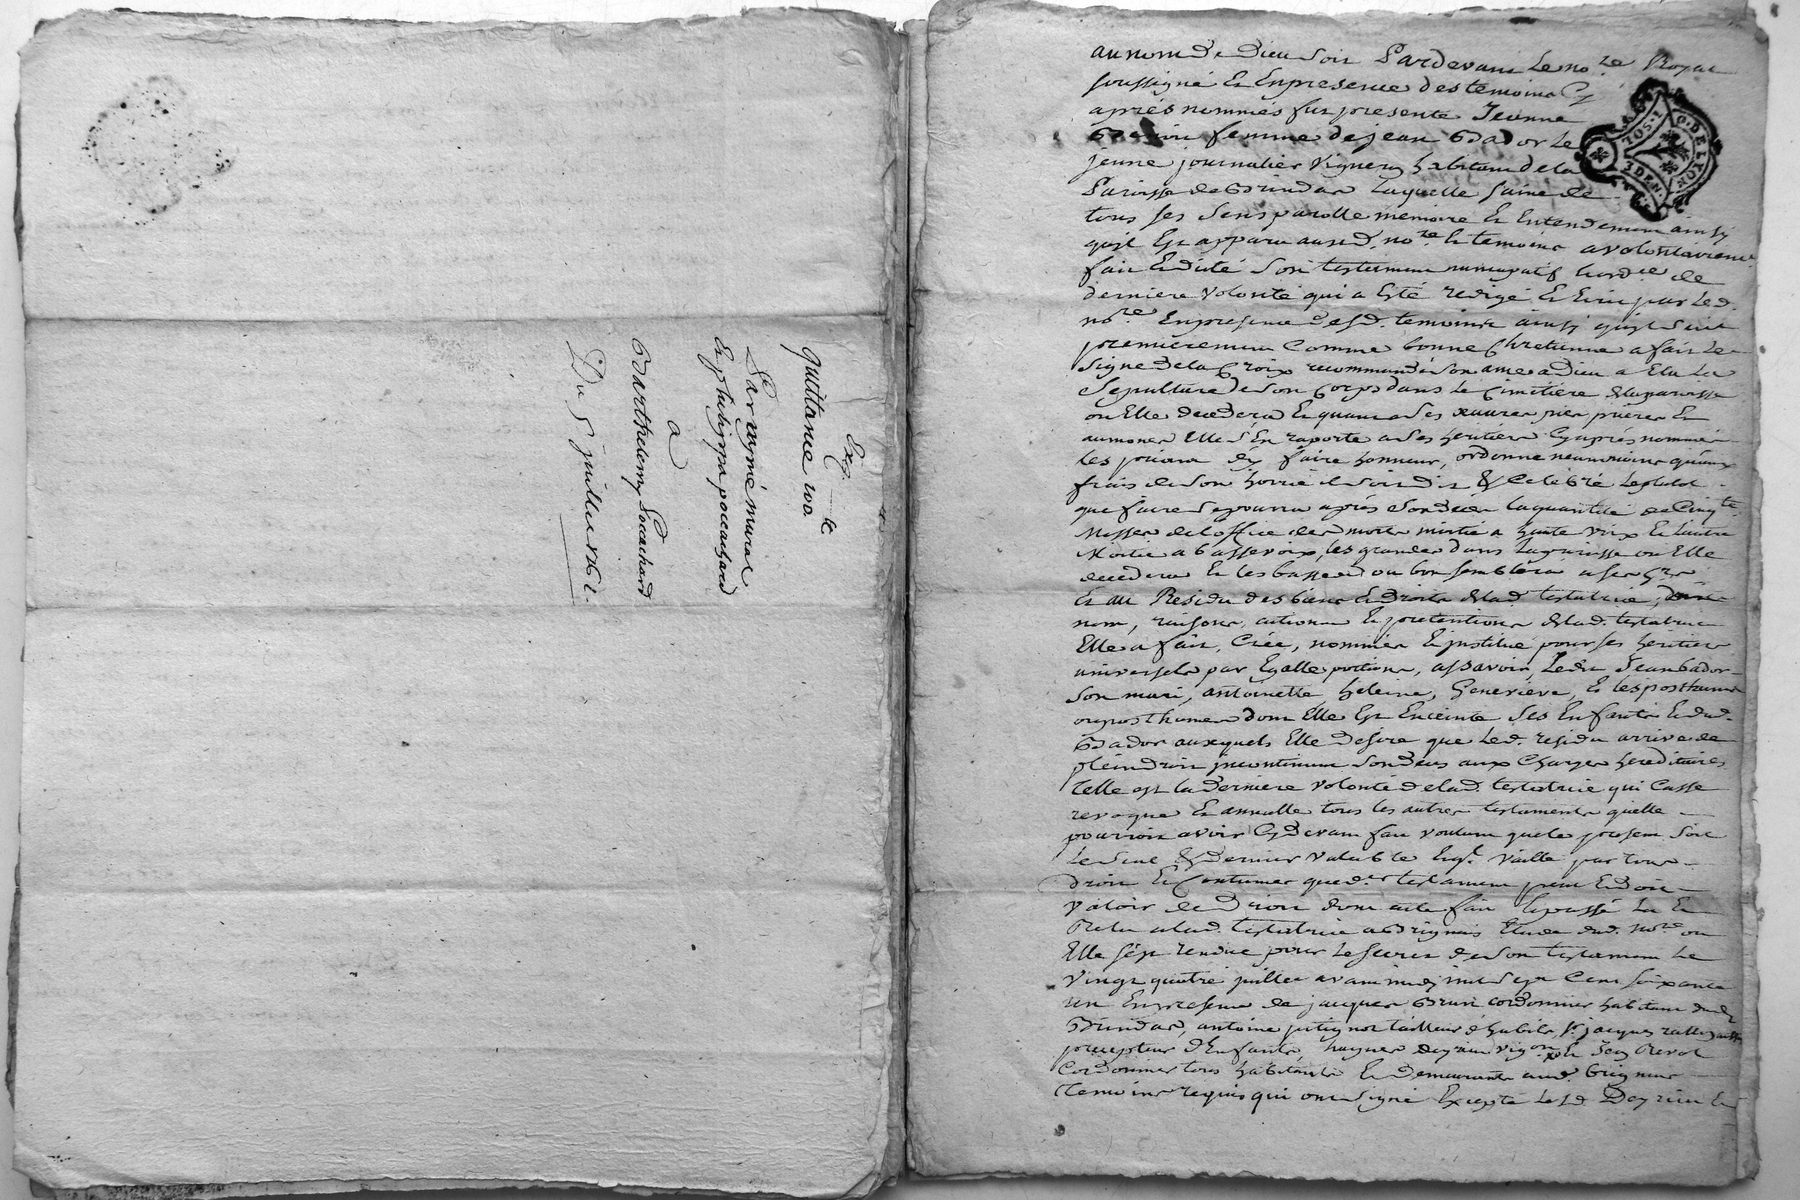 Exp te
quittance 100
Sr aymé murat
Et phelippe pocachard
a
Barthelemy Pocachard
Du 5 juillet 1761.
GEN. DE LYON
1 SOL. 1 DEN.
au nom de Dieu soit Pardevant Le nore Royal
soussigné Et En presence des temoins Cy
aprés nommés fut presente Jeanne
femme de jean Bador Le
jeune journalier Vigneron habitant de la
Paroisse de Brindas Laquelle saine de
tous ses sens parolle memoire Et Entendement ainsy
quil Est apparu ausd. nore Et temoins a volontairemt
fait Et dicté Son testament nuncupatif Et ordce de
derniere Volonté qui a Esté redigé Et Ecrit par Led.
nore En presence desd. temoins ainsy quil suit
premierement Comme bonne Chretienne a fait Le
signe de la Croix recommandé son ame a Dieu a Elu La
Sepulture de son Corps dans Le Cimetiere de la paroisse
ou Elle decedera Et quant a ses œuvres pies prieres Et
aumones Elle s'En raporte a ses heritiers Cy aprés nommés
les priant d'y faire honneur, ordonne neanmoins quaux
frais de son hoirie il soit dit & Celebré Le plutot
que faire se pourra aprés son decés La quantité de Cinqte
Messes de l'office des morts moitié a haute voix Et L'autre
Moitié a basse voix, les grandes dans La paroisse ou Elle
decedera Et les basses ou bon semblera a ses hrs
Et au Residu des biens Et droits de lad. testatrice,
nom, raisons, actions Et pretentions de lad. testatrice
Elle a fait, Créé, nommé Et institué pour ses heritiers
universels par Egalle portions, assavoir, Ledit Jean bador
son mari, antoinette, heleine, Genevieve, Et les posthume
ou posthumes dont Elle Est Enceinte ses Enfants Et dud.
Bador auxquels Elle desire que Led. residu arrive de
plein droit incontinent son decés aux Charges hereditaires
Telle est la derniere volonté de lad. testatrice qui Casse
revoque Et annulle tous les autres testaments quelle
pourroit avoir Cy devant fait voulant que le present soit
Le seul & dernier valable Et quil vaille par tous
droits Et Coutumes que dr testament peut Et doit
valoir de droit dont acte fait Et passé Lu Et
Relu a lad. testatrice a Brignais Etude dud. nore ou
Elle s'est rendue pour Le secret de son testament Le
Vingt quatre juillet avant midy mil sept Cent soixante
un En presence de jacques Brun cordonnier habitant dud.
Brindas, antoine petignot tailleur d'habits Sr jacques
precepteur d'Enfants, vigon Et Prevot
Cordonnier tous habitants Et demeurants aud. brignais
Temoins requis qui ont signé Excepté Led. Et